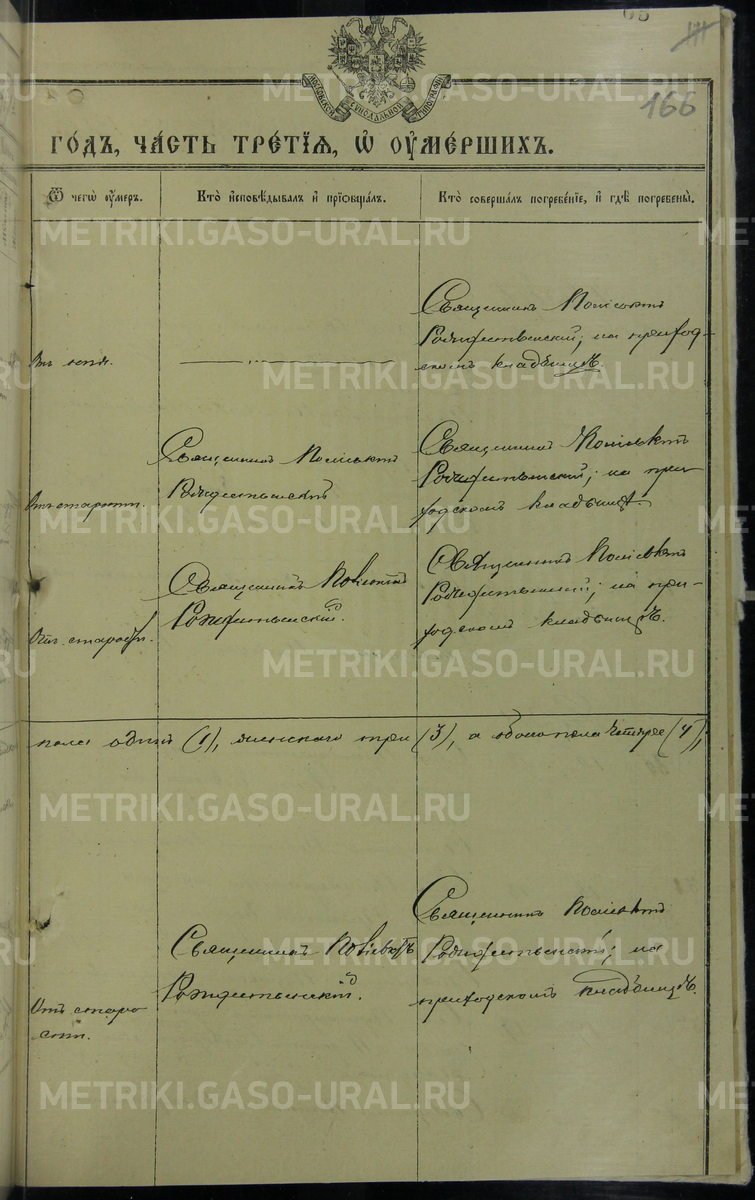 65
166
МОСКОВСКОЙ СѴНОДАЛЬНОЙ ТИПОГРАФІИ
ГО́ДЪ, ЧА́СТЬ ТРЕ́ТІѦ, Ѡ҆ ОУ҆МЕ́РШИХЪ.
Ѿ чегѡ̀ оу҆́меръ.
Кто̀ и҆сповѣ́дывалъ и҆ прїѡбща́лъ.
Кто̀ соверша́лъ погребе́нїе, и҆ гдѣ̀ погребены̀.
Священникъ
Рождественскій; на приход-
скомъ кладбищѣ.
Отъ старости.
Священникъ
Рождественскій
Священникъ
Рождественскій; на при-
ходскомъ кладбищѣ.
Отъ старости.
Священникъ
Рождественскій.
Священникъ
Рождественскій; на при-
ходскомъ кладбищѣ.
пола одинъ (1), женскаго три (3), а обоего пола четыре (4),
Отъ старо
сти.
Священникъ
Рождественскій.
Священникъ
Рождественскій; на
приходскомъ кладбищѣ.
METRIKI.GASO-URAL.RU